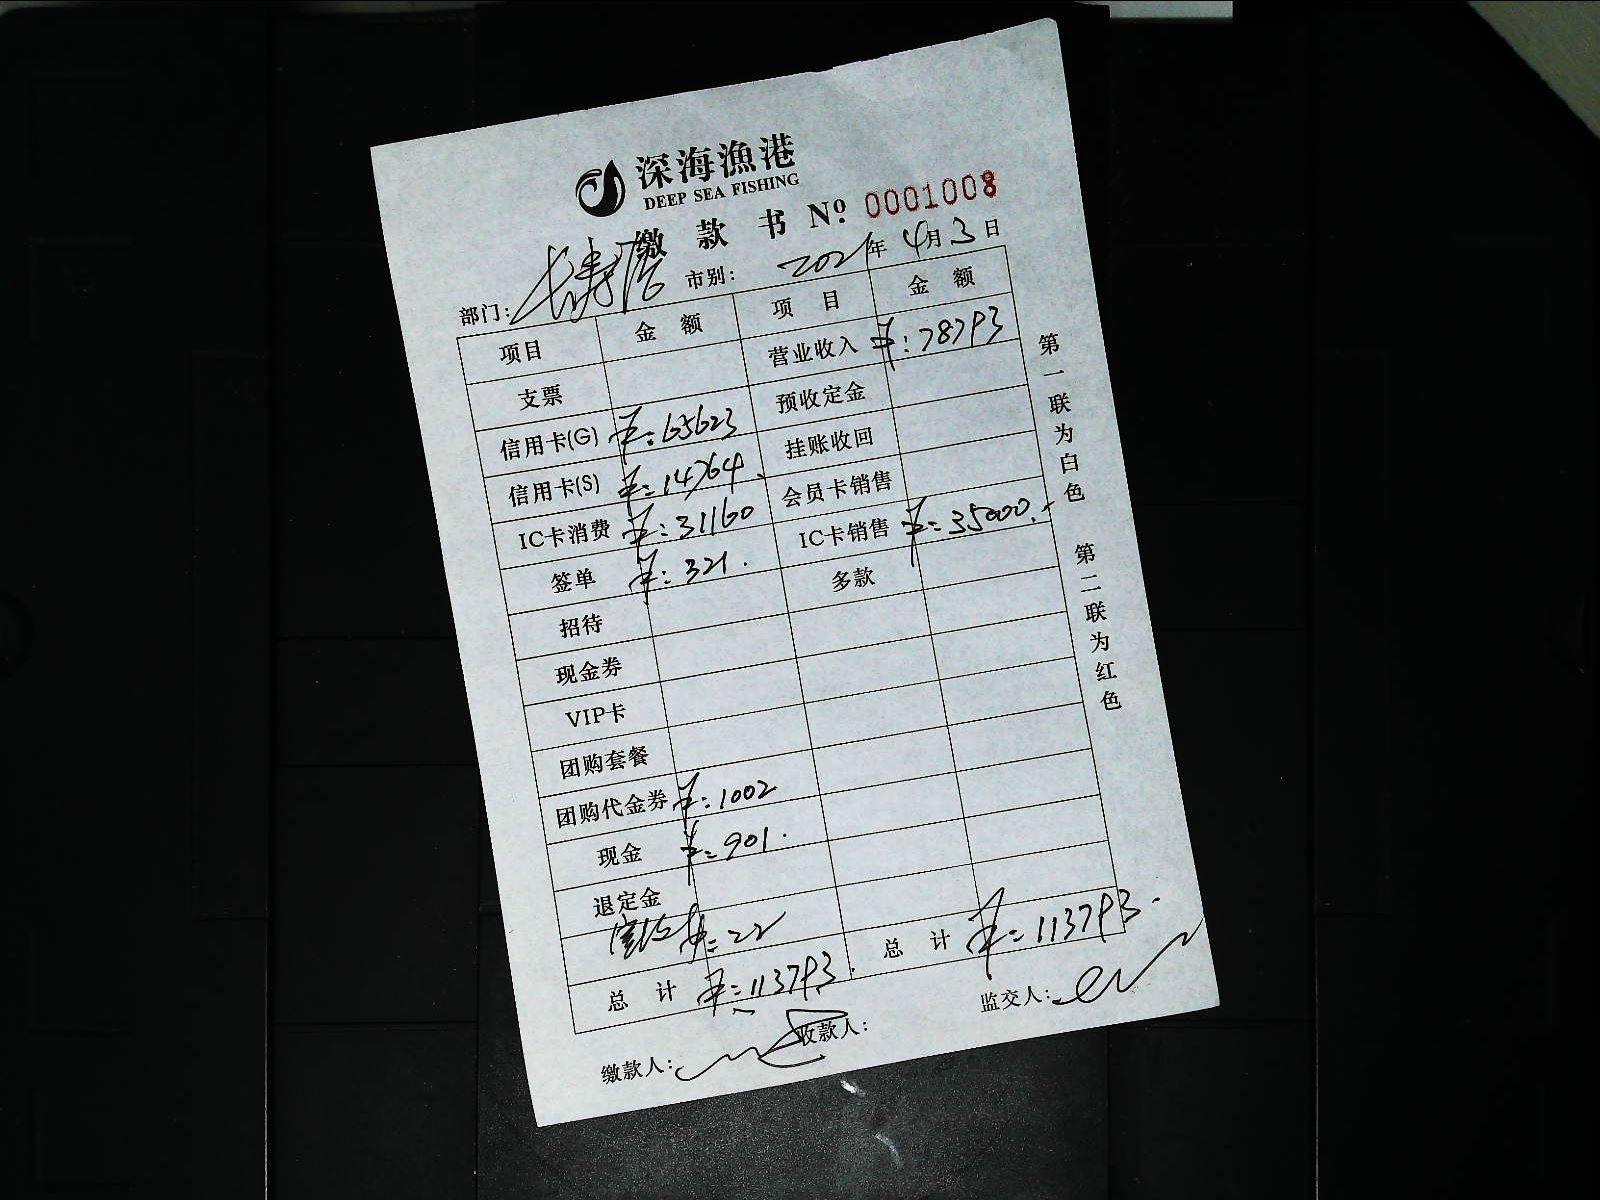 深海漁港
DEEP SEA FISHING
缴款书 Nº 0001008
部门: 长寿店 市别: 2021年4月3日
项目 金额 项目 金额
支票 营业收入 ¥:78793
信用卡(G) ¥:65623 预收定金
信用卡(S) ¥:14764 挂账收回
IC卡消费 ¥:31160 会员卡销售
签单 ¥:321. IC卡销售 ¥:35000.-
招待 多款
现金券
VIP卡
团购套餐
团购代金券 ¥:1002
现金 ¥:901.
退定金
¥:22
总计 ¥:113793. 总计 ¥:113793.
缴款人: 收款人: 监交人:
第一联为白色 第二联为红色